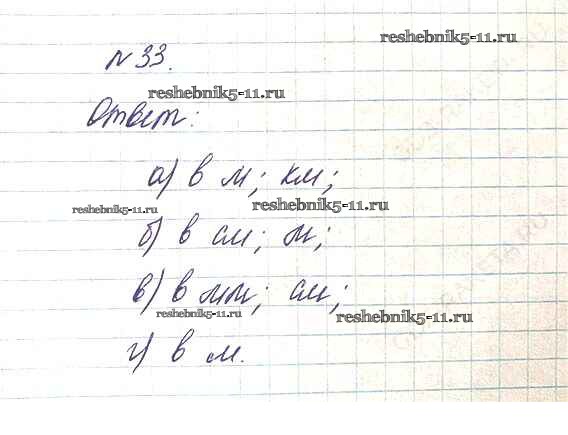 reshebnik5-11.ru
№33.
reshebnik5-11.ru
Ответ:
а) в м; км;
reshebnik5-11.ru
reshebnik5-11.ru
б) в см; м;
в) в мм; см;
reshebnik5-11.ru
reshebnik5-11.ru
г) в м.